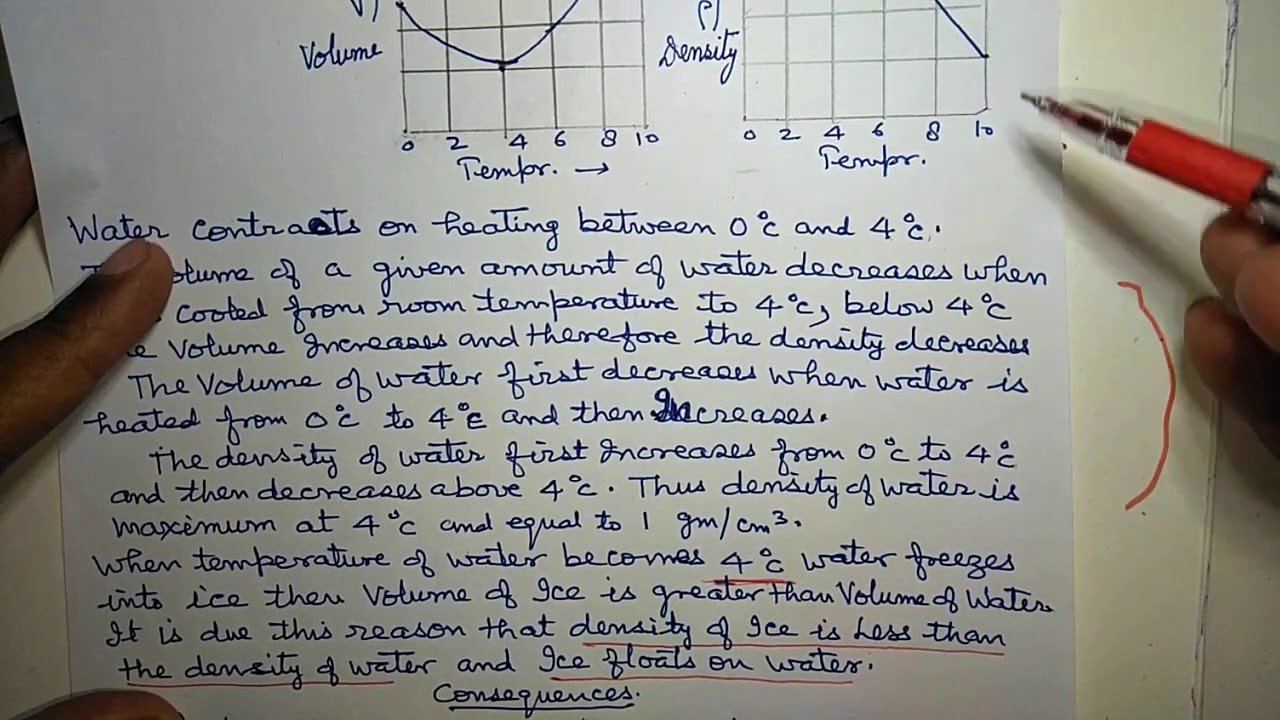 Volume
Density
0 2 4 6 8 10
0 2 4 6 8 10
Tempr. →
Tempr.
Water contracts on heating between 0°c and 4°c.
volume of a given amount of water decreases when
cooled from room temperature to 4°c, below 4°c
volume increases and therefore the density decreases
The volume of water first decreases when water is
heated from 0°c to 4°c and then Increases.
The density of water first increases from 0°c to 4°c
and then decreases above 4°c. Thus density of water is
maximum at 4°c and equal to 1 gm/cm³.
When temperature of water becomes 4°c water freezes
into ice then Volume of Ice is greater than Volume of Water.
It is due this reason that density of Ice is Less than
the density of water and Ice floats on water.
Consequences.